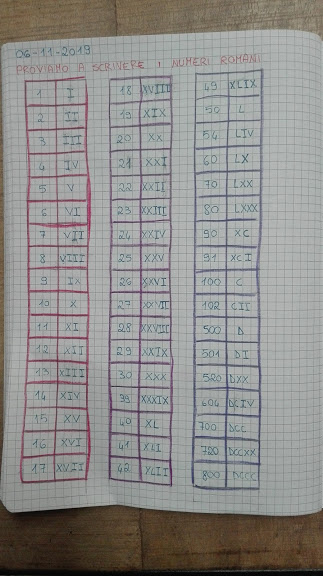 06-11-2019
PROVIAMO A SCRIVERE I NUMERI ROMANI
1 I
2 II
3 III
4 IV
5 V
6 VI
7 VII
8 VIII
9 IX
10 X
11 XI
12 XII
13 XIII
14 XIV
15 XV
16 XVI
17 XVII
18 XVIII
19 XIX
20 XX
21 XXI
22 XXII
23 XXIII
24 XXIV
25 XXV
26 XXVI
27 XXVII
28 XXVIII
29 XXIX
30 XXX
39 XXXIX
40 XL
41 XLI
42 XLII
49 XLIX
50 L
54 LIV
60 LX
70 LXX
80 LXXX
90 XC
91 XCI
100 C
102 CII
500 D
501 DI
520 DXX
604 DCIV
700 DCC
720 DCCXX
800 DCCC